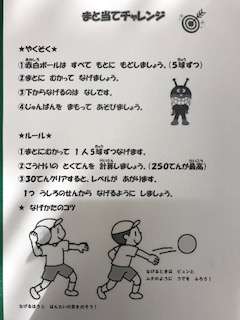 まと当てチャレンジ
＜やくそく＞
①赤白ボールは すべて もとに もどしましょう。（5球ずつ）
②まとに むかって なげましょう。
③下からなげるのは なしです。
④じゅんばんを まもって あそびましょう。
＜ルール＞
①まとにむかって 1人5球ずつなげます。
②ごうけいの とくてんを 計算しましょう。（250てんが最高）
③30てんクリアすると、レベルが あがります。
1つ うしろのせんから なげるように しましょう。
★ なげかたのコツ
なげるほうと はんたいの足を出そう！
なげるときは ビュンと
ムチのように うでを ふろう！